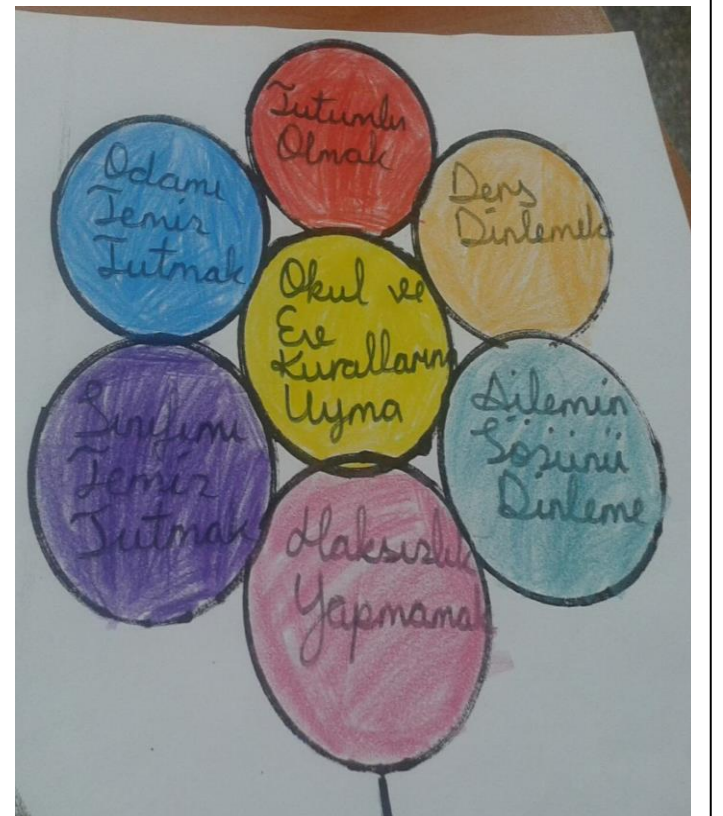 Tutumlu
Olmak
Odamı
Temiz
Tutmak
Ders
Dinlemek
Okul ve
Ev
Kurallarına
Uyma
Sınıfımı
Temiz
Tutmak
Ailemin
Sözünü
Dinleme
Haksızlık
Yapmamak